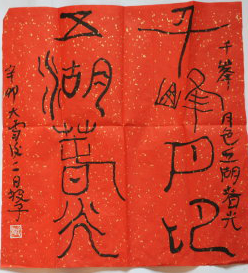 千峰月色
五湖春光
千峯月色五湖春光
辛卯大雪後一日